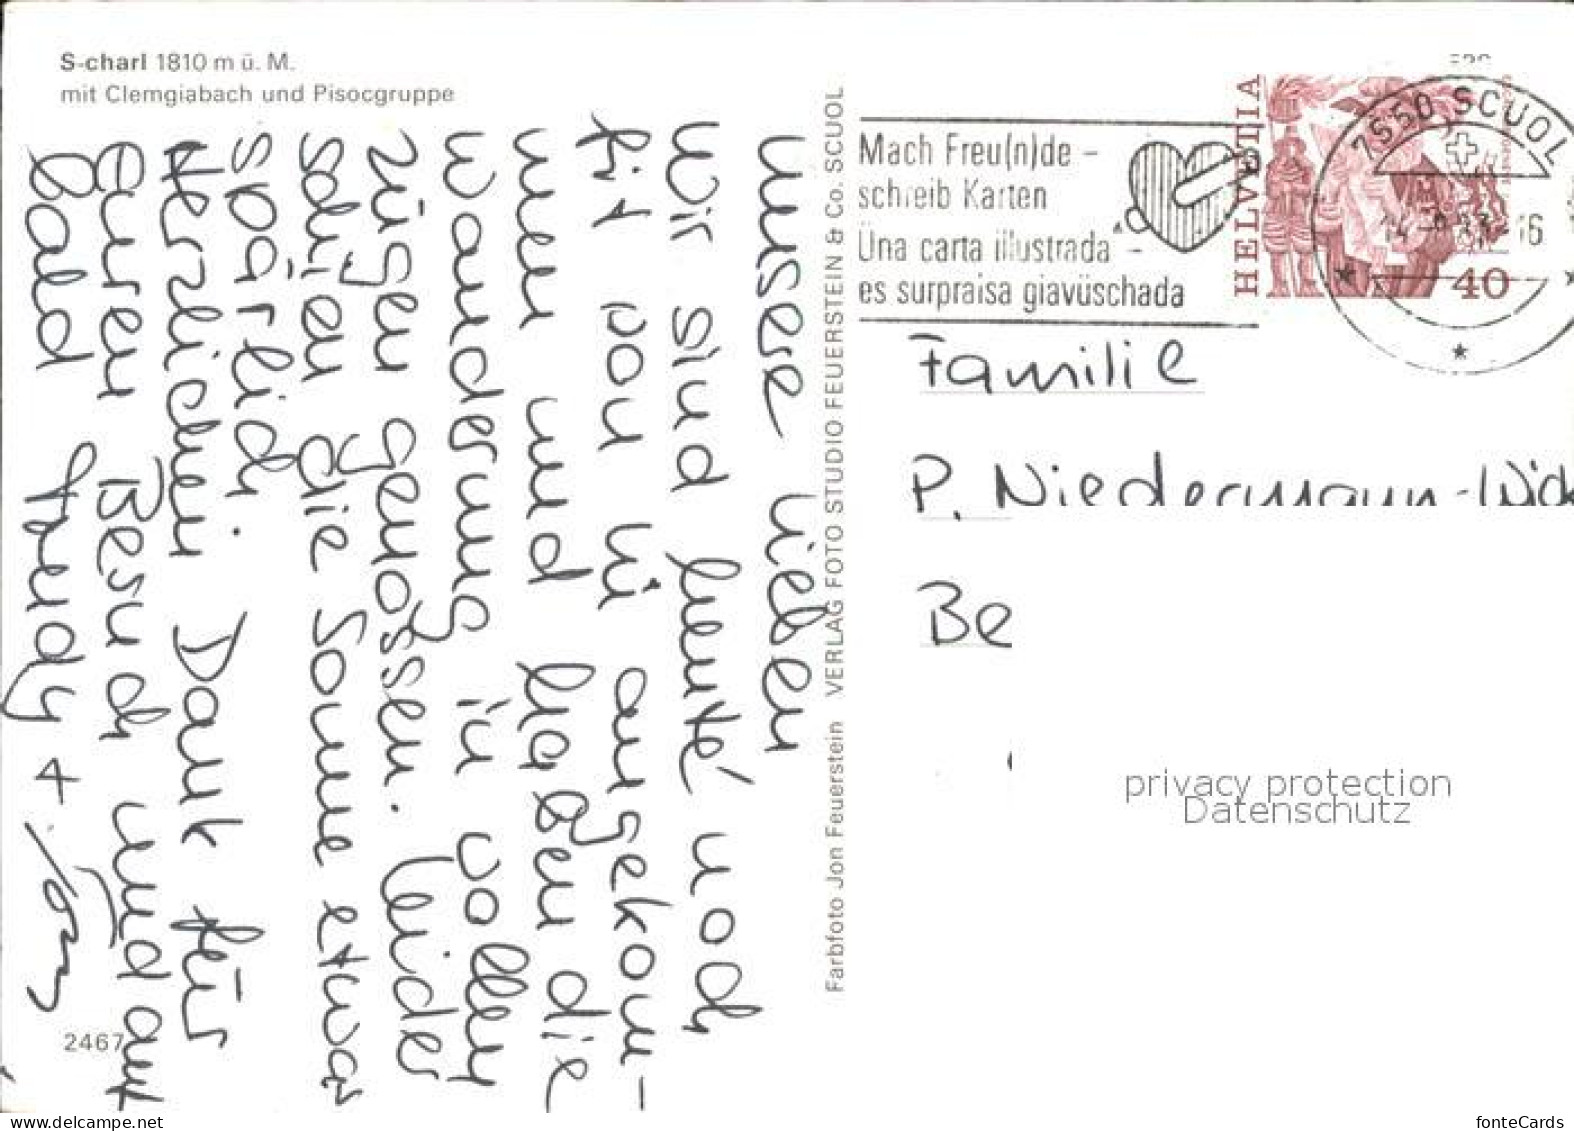 S-charl 1810 m ü. M.
mit Clemgiabach und Pisocgruppe
Unsere lieben
Wir sind heute noch
fit von hi angekom-
men und haben die
Wanderung in vollen
Zügen genossen. Leider
schien die Sonne etwas
spärlich.
Herzlichen Dank für
Euren Besuch und auf
bald Trudy +
2467
Farbfoto Jon Feuerstein VERLAG FOTO STUDIO FEUERSTEIN & Co. SCUOL
Mach Freu(n)de –
schreib Karten
Üna carta illustrada –
es surpraisa giavüschada
HELVETIA
40
7550 SCUOL
16
Familie
P. Niedermann-
Be
privacy protection
Datenschutz
www.delcampe.net
fonteCards